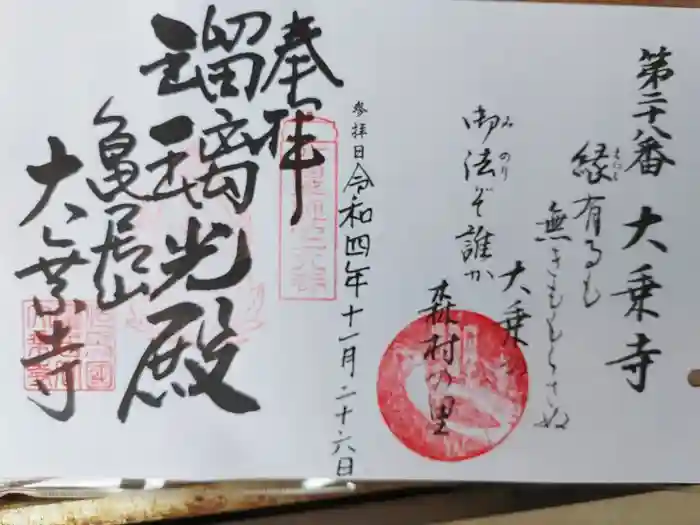 第二十八番 大乗寺
縁有るも
無きももらさぬ
大乗の
御法ぞ誰か
森村の里
参拝日 令和四年十一月二十六日
奉拝
瑠璃光殿
亀居山
大乗寺